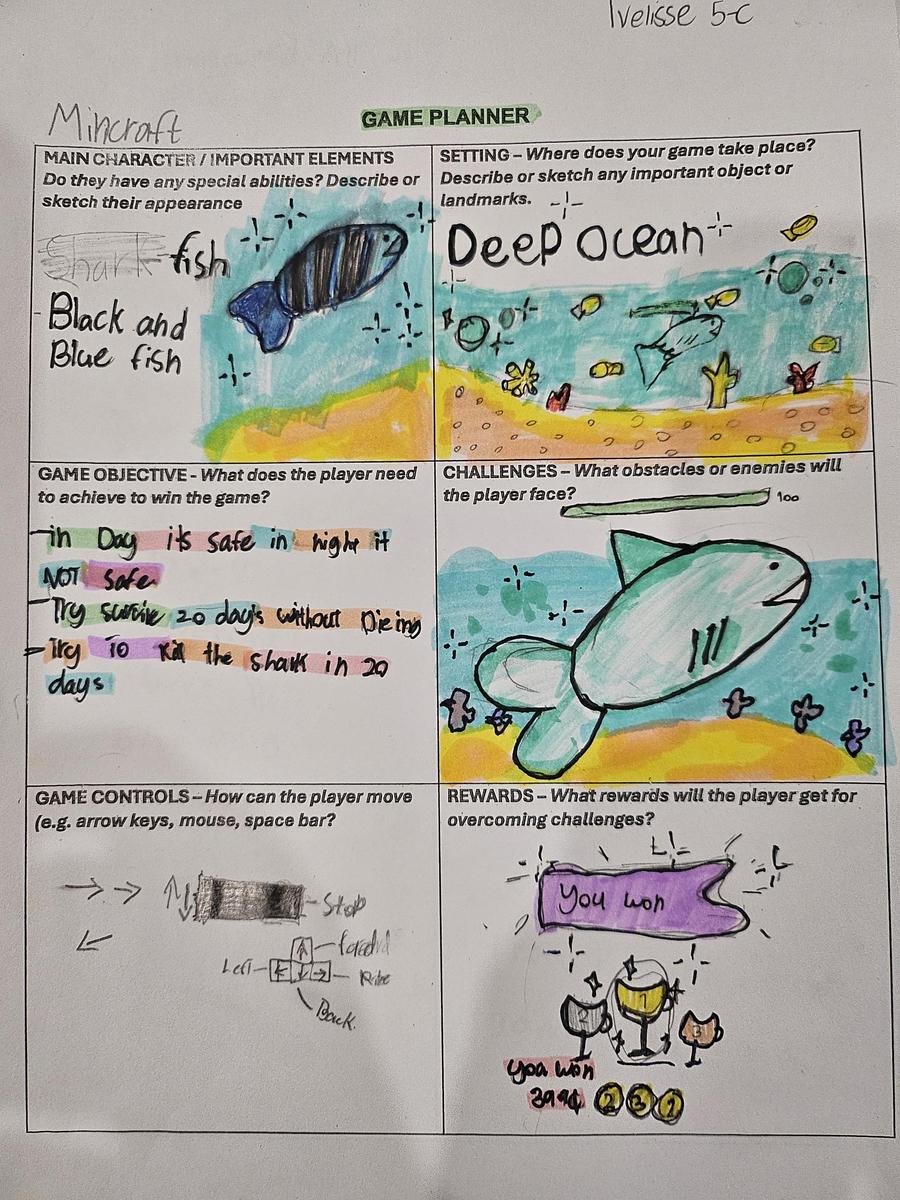 Ivelisse 5-C
Mincraft
GAME PLANNER
MAIN CHARACTER / IMPORTANT ELEMENTS
Do they have any special abilities? Describe or
sketch their appearance
Shark fish
Black and
Blue fish
SETTING – Where does your game take place?
Describe or sketch any important object or
landmarks.
Deep Ocean
GAME OBJECTIVE - What does the player need
to achieve to win the game?
in Day it's safe in night it
NOT safe
Try survive 20 day's without Dieing
Try To Kill the shark in 20
days
CHALLENGES – What obstacles or enemies will
the player face?
100
GAME CONTROLS – How can the player move
(e.g. arrow keys, mouse, space bar?
Stop
Left
Back
REWARDS – What rewards will the player get for
overcoming challenges?
You won
2 1 3
you won
399¢ 2 3 1